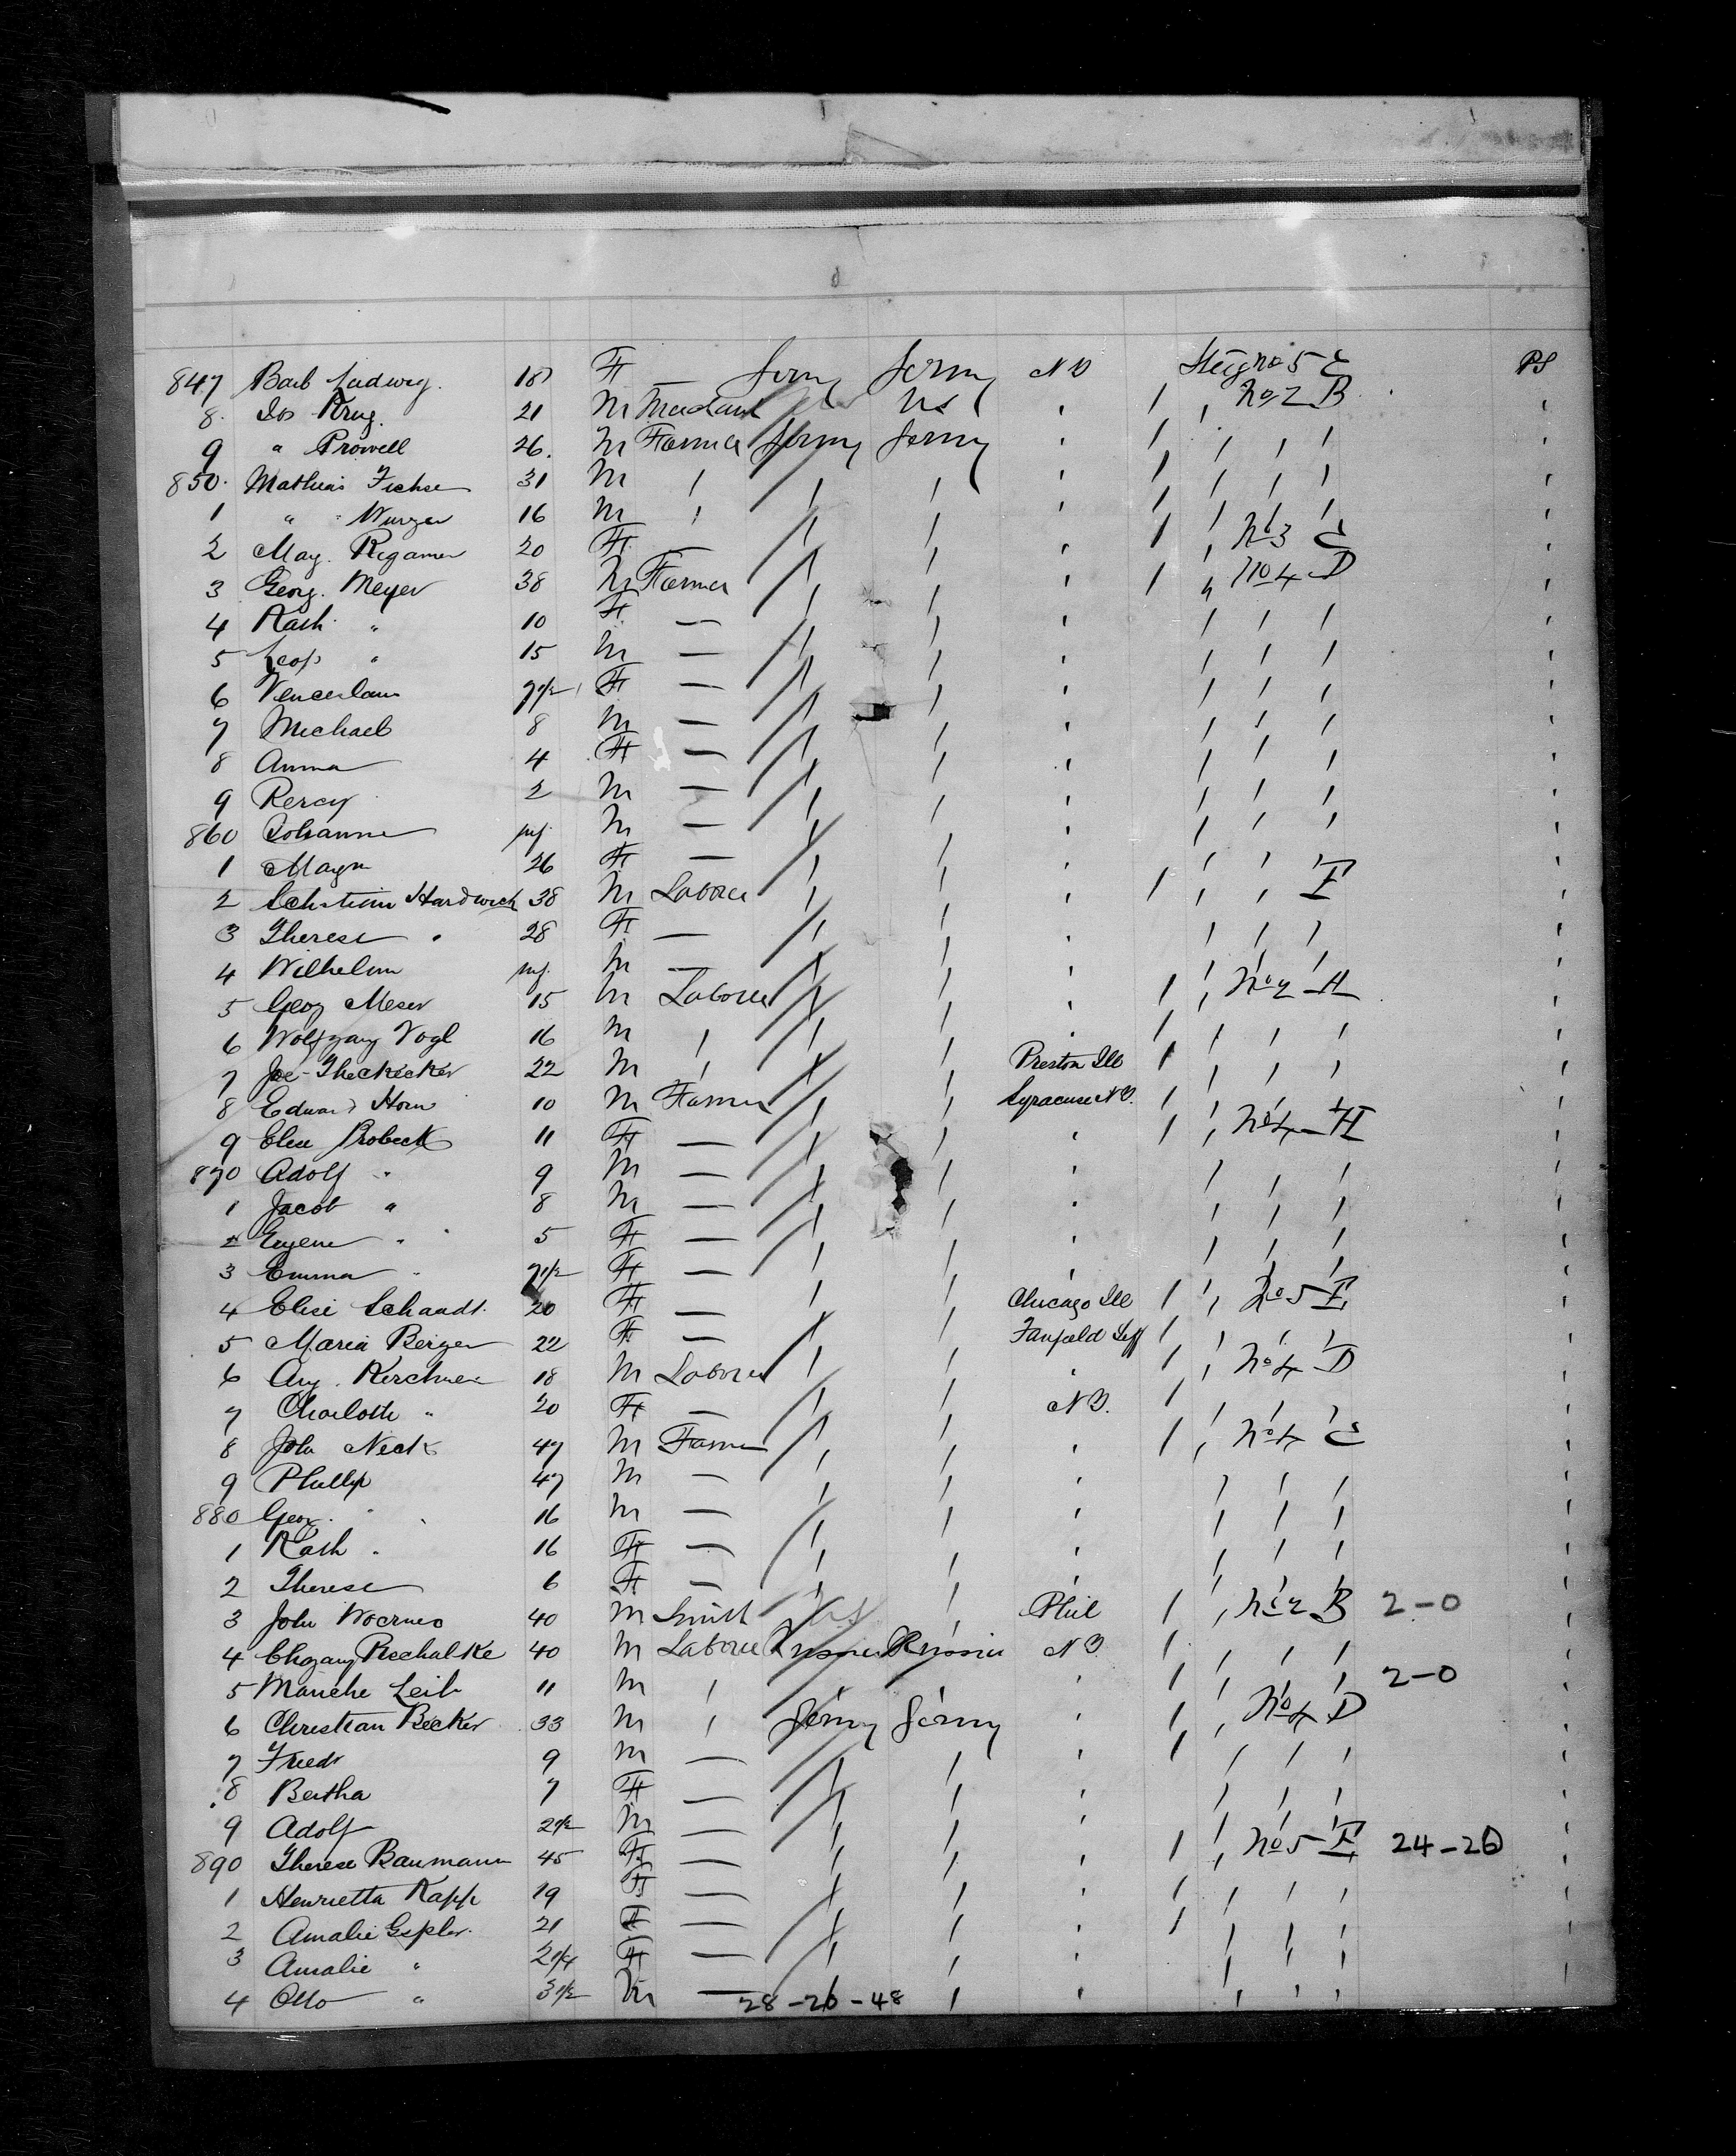 847 Barb Ladwig. 18 F — Germy Germy NY Steig no 5 E PS
8. Jos Krug. 21 M US " 1 " No 2 B "
9 " Prowell 26. M Farmer Germy Germy " 1 " " " " "
850. Mathias Fichse 31 M " " " " 1 " " " " "
1 " " Wurzer 16 M " " " " 1 " " " " "
2 May. Rigamer 20 F — " " " 1 " No 3 E "
3 Georg. Meyer 38 M Farmer " " " 1 " No 4 D "
4 Kath " 10 F — " " " " " " "
5 Leop " 15 M — " " " " " " "
6 7 1/2 F — " " " " " " "
7 Michael 8 M — " " " " " " "
8 Anna 4 F — " " " " " " "
9 Percy 2 M — " " " " " " "
860 Johanne inf. M — " " " " " " "
1 Magn 26 F — " " " " " " "
2 Hardwich 38 M Laborer " " " 1 " " F "
3 Therese " 28 F — " " " " " " "
4 Wilhelm inf. M — " " " " " " "
5 Georg Meser 15 M Laborer " " " 1 " No 2 H "
6 Wolfgang Vogl 16 M " " " " 1 " " " "
7 Joe 22 M " " " Preston Ill 1 " " " "
8 Edward Horn 10 M Farmer " " Syracuse NY. 1 " " " "
9 Elise Probeck 11 F — " " " 1 " No 4 H "
870 Adolf " 9 M — " " " " " " "
1 Jacob " 8 M — " " " " " " "
2 Eugene " 5 F — " " " " " " "
3 Emma " 7 1/2 F — " " " " " " "
4 Elise Schaadt. 20 F — " " Chicago Ill 1 " No 5 F "
5 Maria Berger 22 F — " " 1 " " " "
6 Aug. Kerchner 18 M Laborer " " " 1 " No 4 D "
7 Charlotte " 20 F — " " NY. 1 " " " "
8 John Neck 47 M Farmer " " " 1 " No 4 E "
9 Phillip 47 M — " " " " " " "
880 Georg. " 16 M — " " " " " " "
1 Kath " 16 F — " " " " " " "
2 Therese 6 F — " " " " " " "
3 John 40 M Smith US " Phil 1 " No 2 B 2-0 "
4 40 M Laborer Russia Russia NY 1 " " " "
5 Manche Leib 11 M " " " " 1 " " " 2-0 "
6 Christian Becker 33 M " Germy Germy " 1 " No 4 D "
7 Friedr 9 M — " " " 1 " " " "
8 Bertha 7 F — " " " " " " "
9 Adolf 2 1/2 M — " " " " " " "
890 Therese Baumann 45 F — " " " 1 " No 5 F 24-26 "
1 Henrietta Kapp 19 F — " " " 1 " " " "
2 Amalie Gepler. 21 F — " " " 1 " " " "
3 Amalie " 2 1/4 F — " " " " " " "
4 Otto " 3 1/2 M — 28-26-48 " " " " "